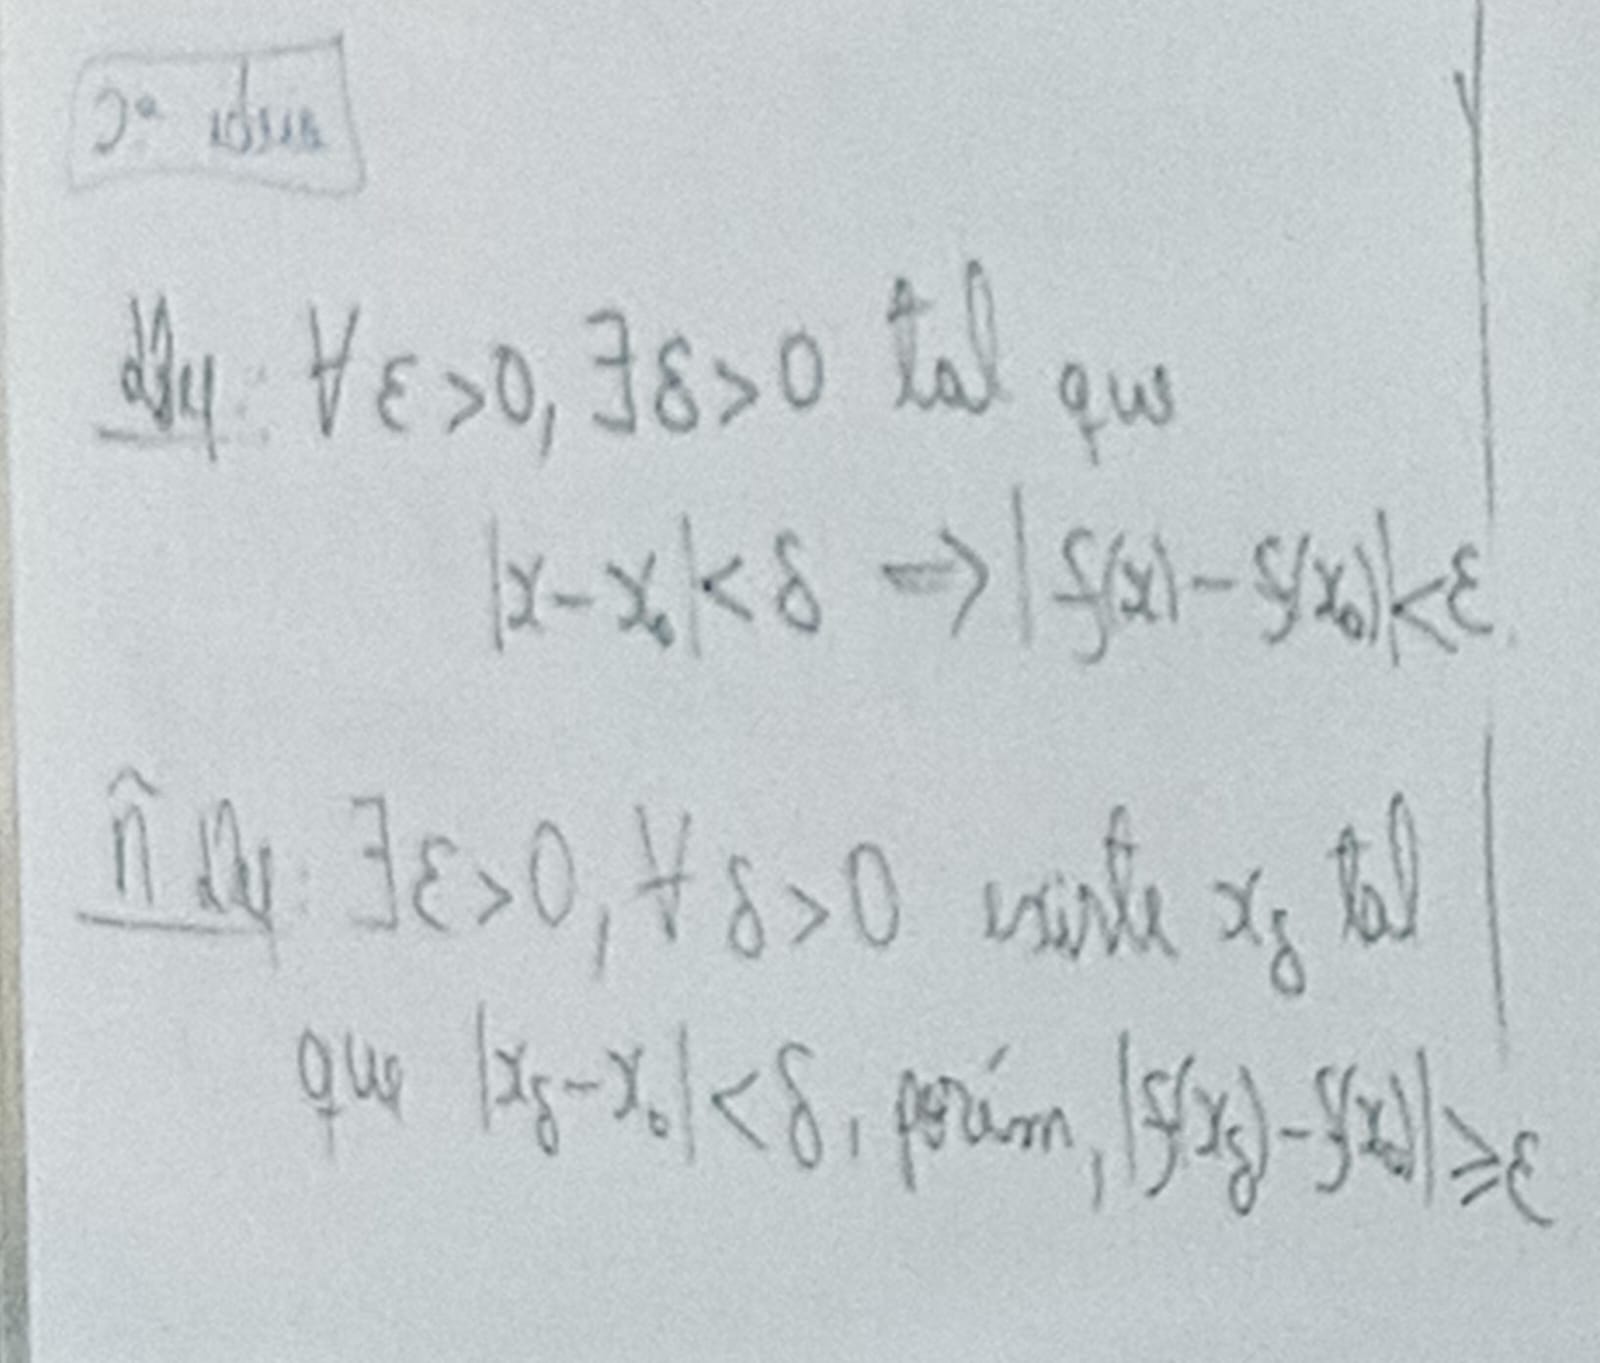 2ª ideia
def: ∀ε>0, ∃δ>0 tal que
|x-x₀|<δ ⇒ |f(x)-f(x₀)|<ε.
ñ def: ∃ε>0, ∀δ>0 existe x_δ tal
que |x_δ-x₀|<δ, porém, |f(x_δ)-f(x₀)|≥ε